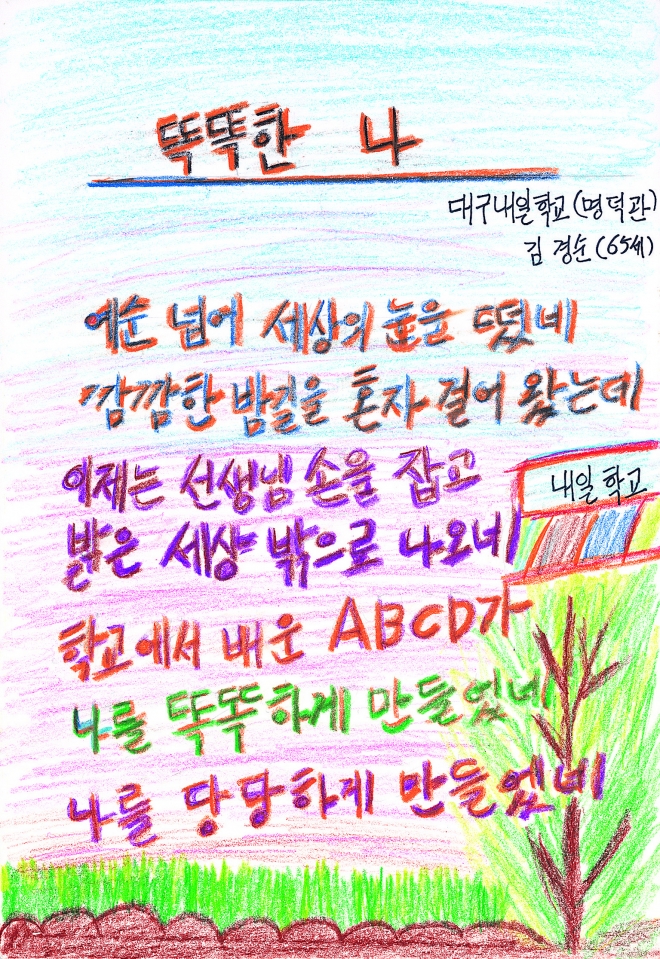 똑똑한 나
대구내일학교(명덕관)
김경순(65세)
예순 넘어 세상의 눈을 떴네
깜깜한 밤길을 혼자 걸어 왔는데
이제는 선생님 손을 잡고
내일 학교
밝은 세상 밖으로 나오네
학교에서 배운 ABCD가
나를 똑똑하게 만들었네
나를 당당하게 만들었네